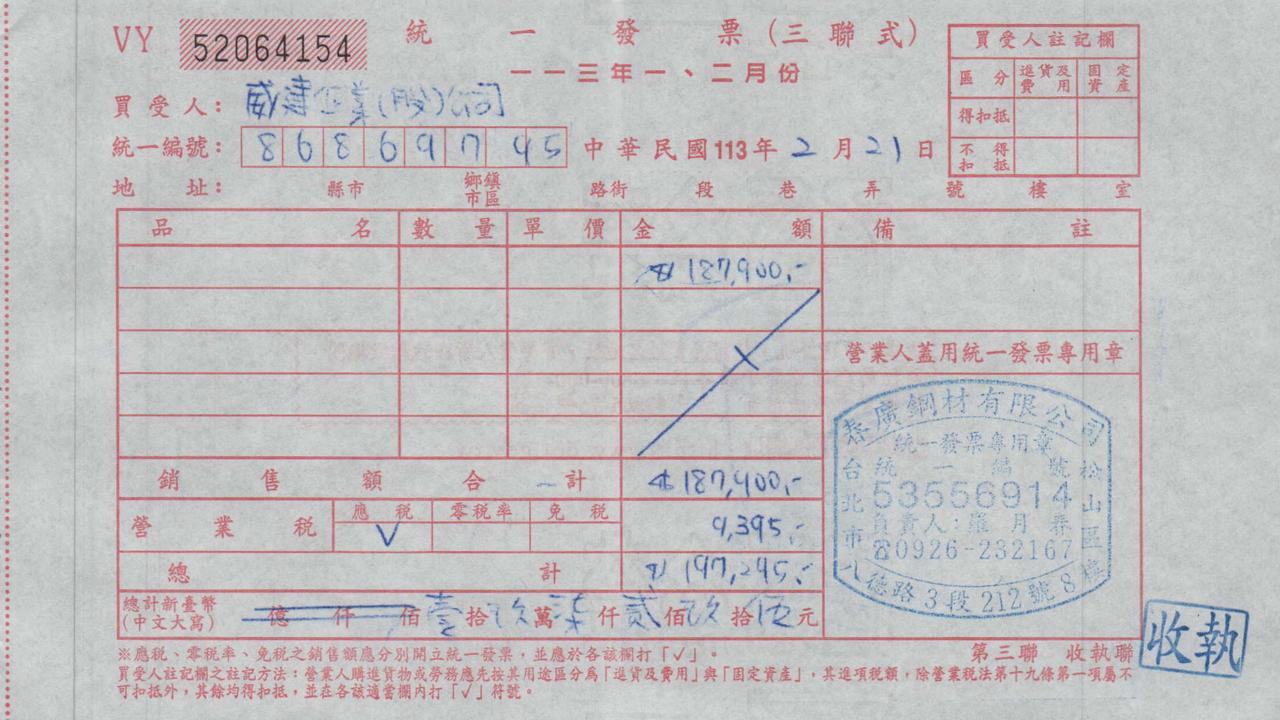 VY 52064154 統一發票(三聯式)
一一三年一、二月份
買受人註記欄
區分 進貨及費用 固定資產
得扣抵
不得扣抵
買受人:
統一編號: 中華民國113年2月21日
地址: 縣市 鄉鎮市區 路街 段 巷 弄 號 樓 室
品名 數量 單價 金額 備註
187,900,-
營業人蓋用統一發票專用章
銷售額合計 187,900,-
營業稅 應稅 零稅率 免稅 9,395,-
V
總計 197,295,-
總計新臺幣(中文大寫) 億仟佰壹拾玖萬柒仟貳佰玖拾伍元
春廣鋼材有限公司
統一發票專用章
統一編號
53556914
負責人:羅月春
☎0926-232167
台北市松山區八德路3段212號8樓
※應稅、零稅率、免稅之銷售額應分別開立統一發票,並應於各該欄打「✓」。
第三聯 收執聯
收執
買受人註記欄之註記方法:營業人購進貨物或勞務應先按其用途區分為「進貨及費用」與「固定資產」,其進項稅額,除營業稅法第十九條第一項屬不
可扣抵外,其餘均得扣抵,並在各該適當欄內打「✓」符號。